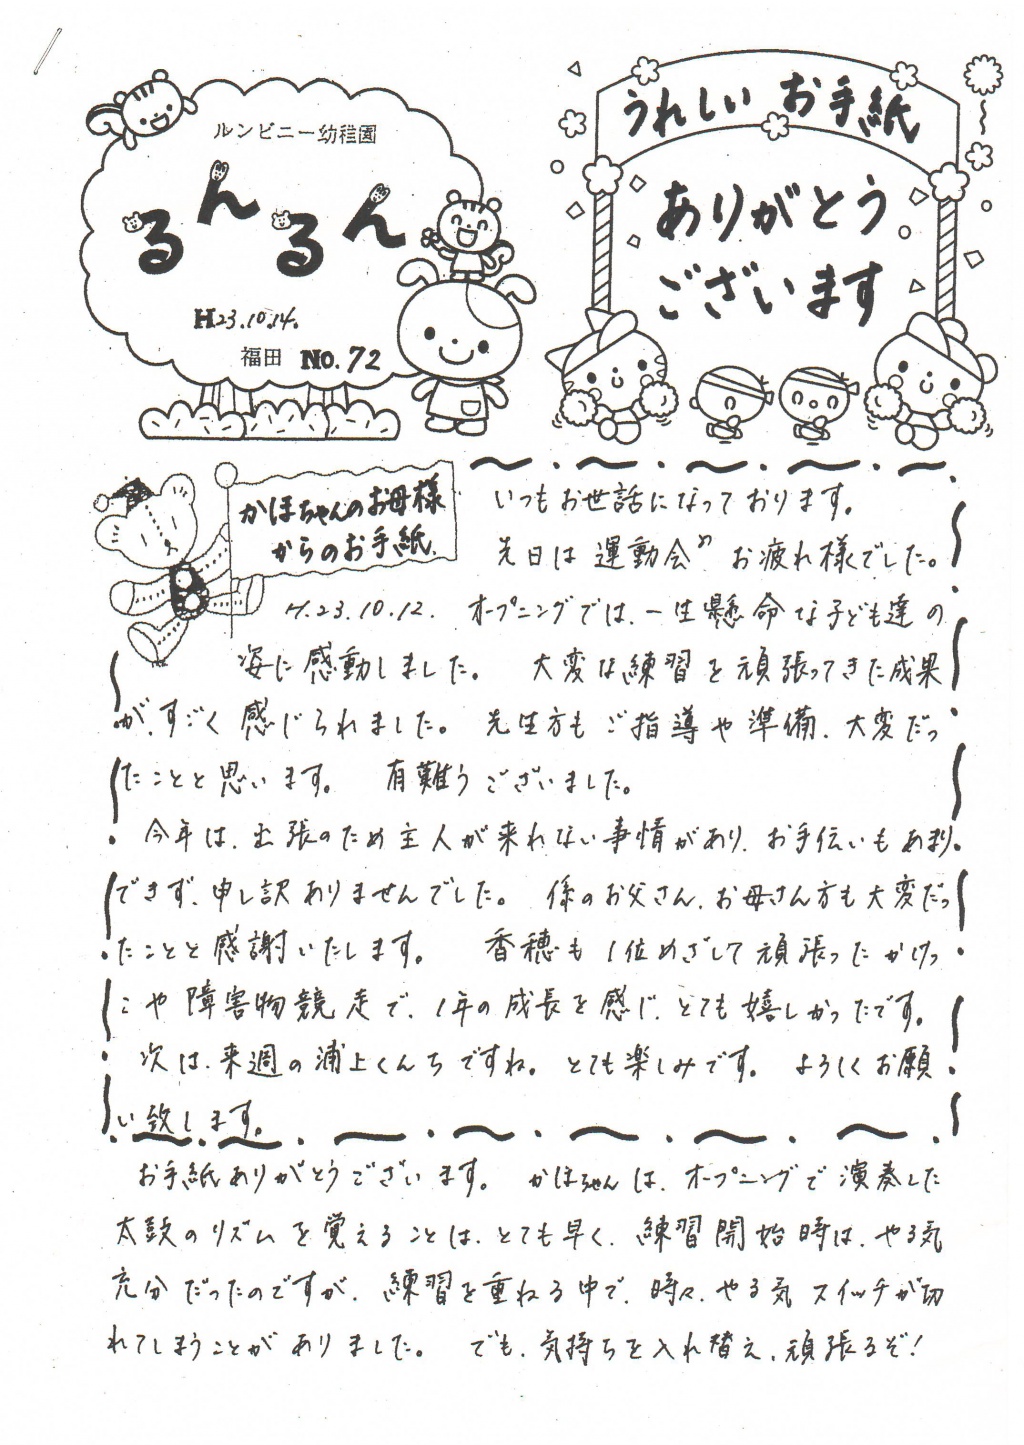 ルンビニー幼稚園
るんるん
H23.10.14.
福田 No.72
うれしい お手紙
ありがとう
ございます
かほちゃんのお母様
からのお手紙.
いつもお世話になっております。
先日は 運動会" お疲れ様でした。
H.23.10.12. オープニングでは、一生懸命な子ども達の
姿に感動しました。 大変な練習を頑張ってきた成果
が、すごく感じられました。 先生方もご指導や準備、大変だっ
たことと思います。 有難うございました。
今年は、出張のため主人が来れない事情があり、お手伝いもあまり
できず、申し訳ありませんでした。 係のお父さん、お母さん方も大変だっ
たことと感謝いたします。 香穂も1位めざして頑張ったかけっ
こや障害物競走で、1年の成長を感じ、とても嬉しかったです。
次は、来週の浦上くんちですね。とても楽しみです。 よろしくお願
い致します。
お手紙ありがとうございます。 かほちゃんは、オープニングで演奏した
太鼓のリズムを覚えることは、とても早く、練習開始時は、やる気
充分だったのですが、練習を重ねる中で、時々、やる気スイッチが切
れてしまうことがありました。 でも、気持ちを入れ替え、頑張るぞ！